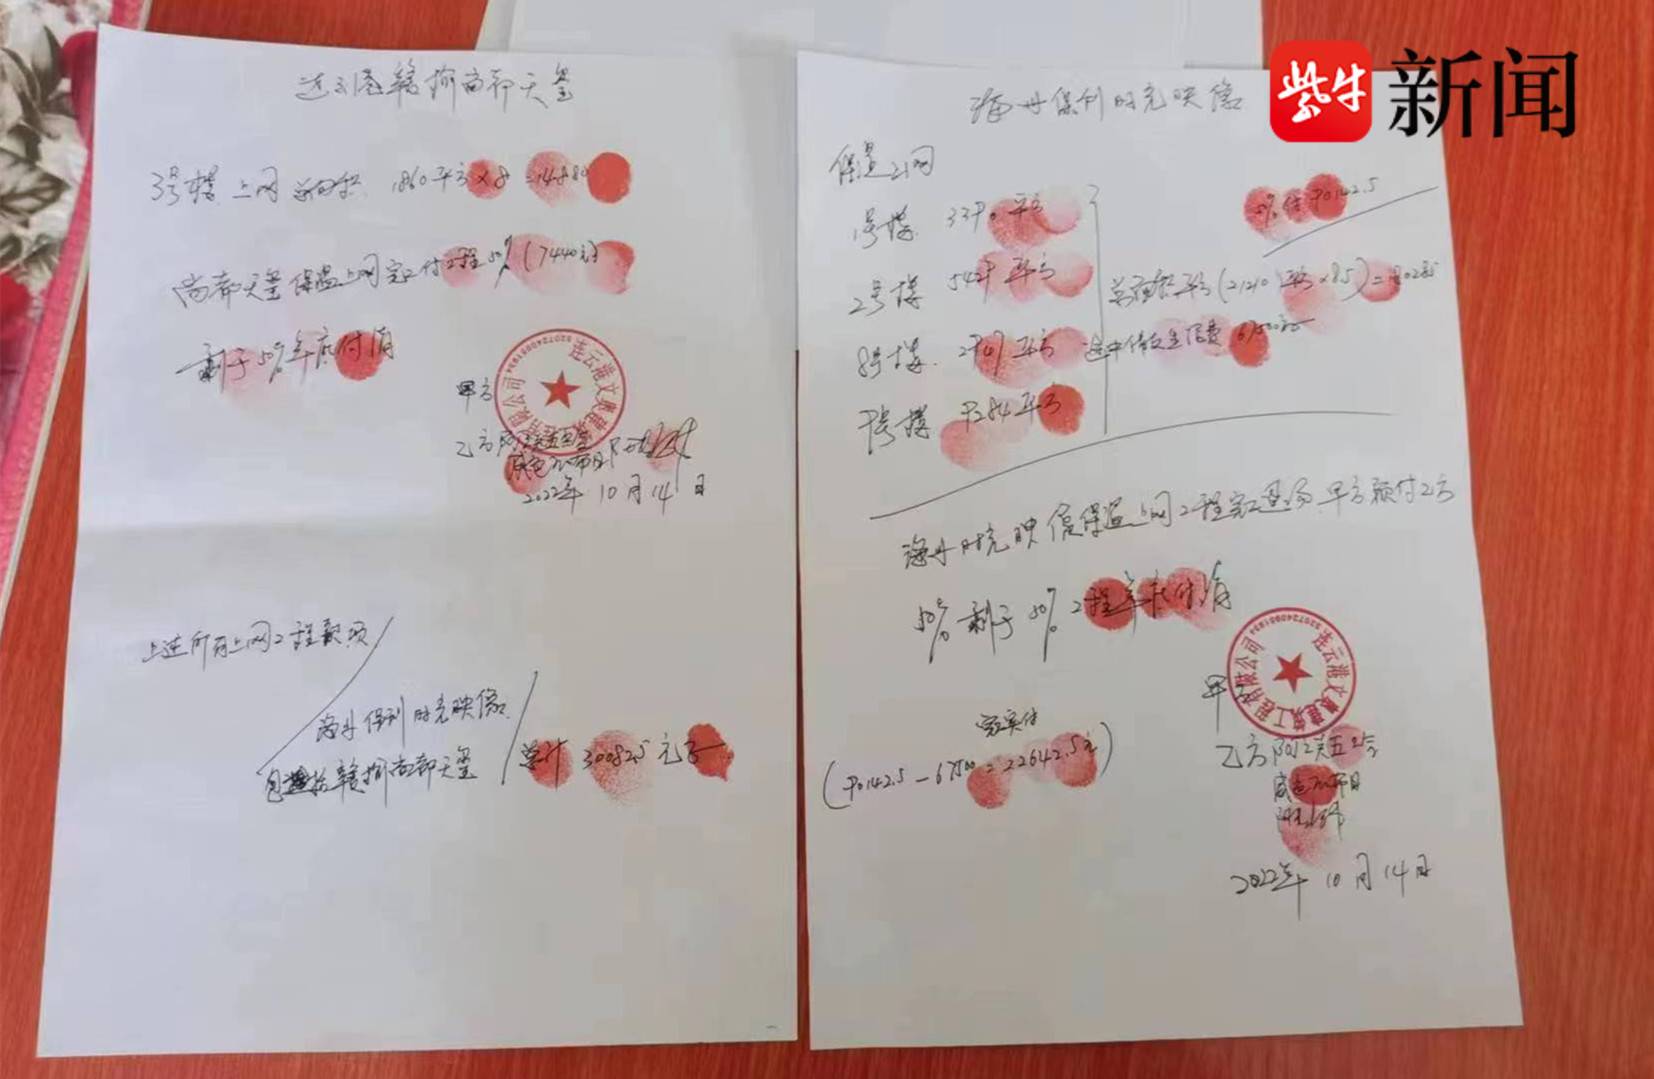 紫牛 新闻
连云港赣榆尚都天玺
3号楼上网总面积 1860平方×8=14880
尚都天玺保温上网完工付工程50%(7440元)
剩于50%年底付清
连云港文 建筑工程有限公司
甲方
乙方
2022年10月14日
上述所有上网工程款项
海州保利时光映像
包括赣榆尚都天玺
总计30082.5元
海州保利时光映像
保温上网
1号楼 3390平方
2号楼 5429平方
8号楼 平方
9号楼 9284平方
50%付90142.5
总面积平方(21210平方×8.5)=180285
途中借支生活费67500元
海州时光映像保温上网工程完工退场,甲方预付乙方
50%剩于50%工程年底付清
连云港文 建筑工程有限公司
甲方
实付
(90142.5-67500=22642.5元)
乙方
2022年10月14日